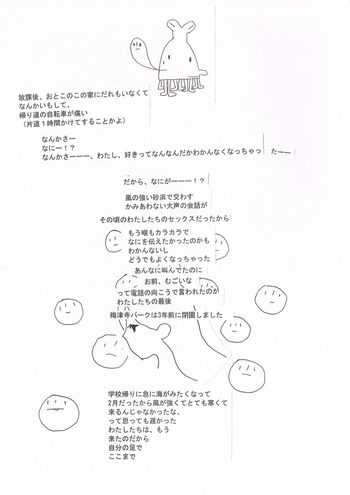 放課後、おとこのこの家にだれもいなくて
なんかいもして、
帰り道の自転車が痛い
（片道１時間かけてすることかよ）
なんかさー
なにー！？
なんかさーーー、わたし、好きってなんなんだかわかんなくなっちゃっ　たーー
だから、なにがーーー！？
風の強い砂浜で交わす
かみあわない大声の会話が
その頃のわたしたちのセックスだったから
もう喉もカラカラで
なにを伝えたかったのかも
わかんないし
どうでもよくなっちゃった
あんなに叫んでたのに
お前、むごいな
って電話の向こうで言われたのが
わたしたちの最後
梅津寺パークは3年前に閉園しました
学校帰りに急に海がみたくなって
2月だったから風が強くてとても寒くて
来るんじゃなかったな、
って思っても遅かった
わたしたちは、もう
来たのだから
自分の足で
ここまで